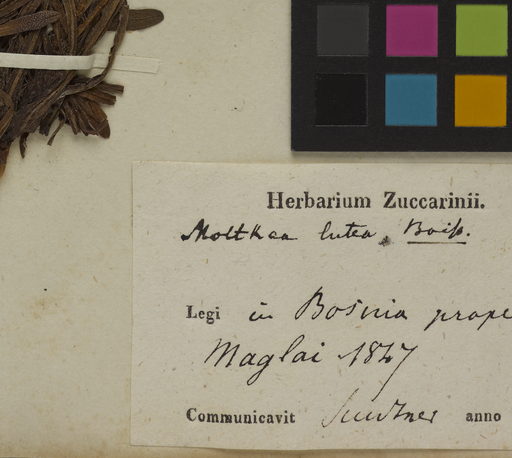 Herbarium Zuccarinii.
Moltkaa lutea Boiß.
Legi in Bosnia prope
Maglai 1847
Communicavit Sendtner anno